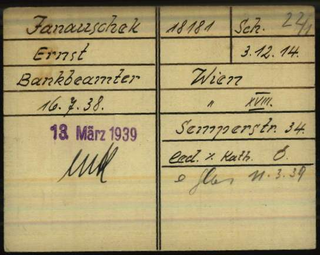 Janauschek 18181 Sch. 22/1
Ernst 3.12.14.
Bankbeamter Wien
16.7.38. " XVIII.
13 März 1939 Semperstr. 34.
led. r. kath.
11.3.39